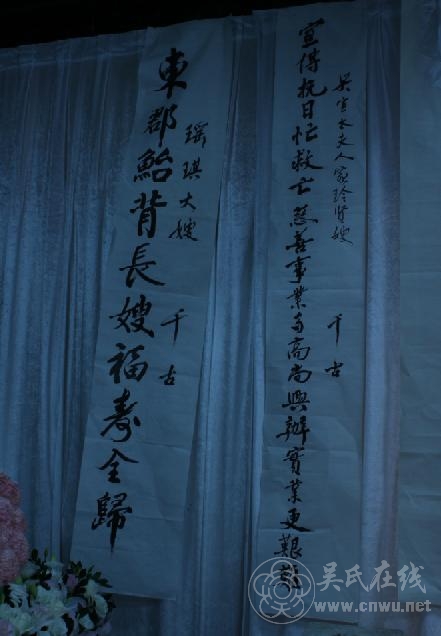 吳宣太夫人家玲賢嫂 千古
宣傳抗日忙救亡慈善事業多高尚興辦實業更艱
瑶琪大嫂 千古
東郡鮐背長嫂福寿全歸
吴氏在线
www.cnwu.net